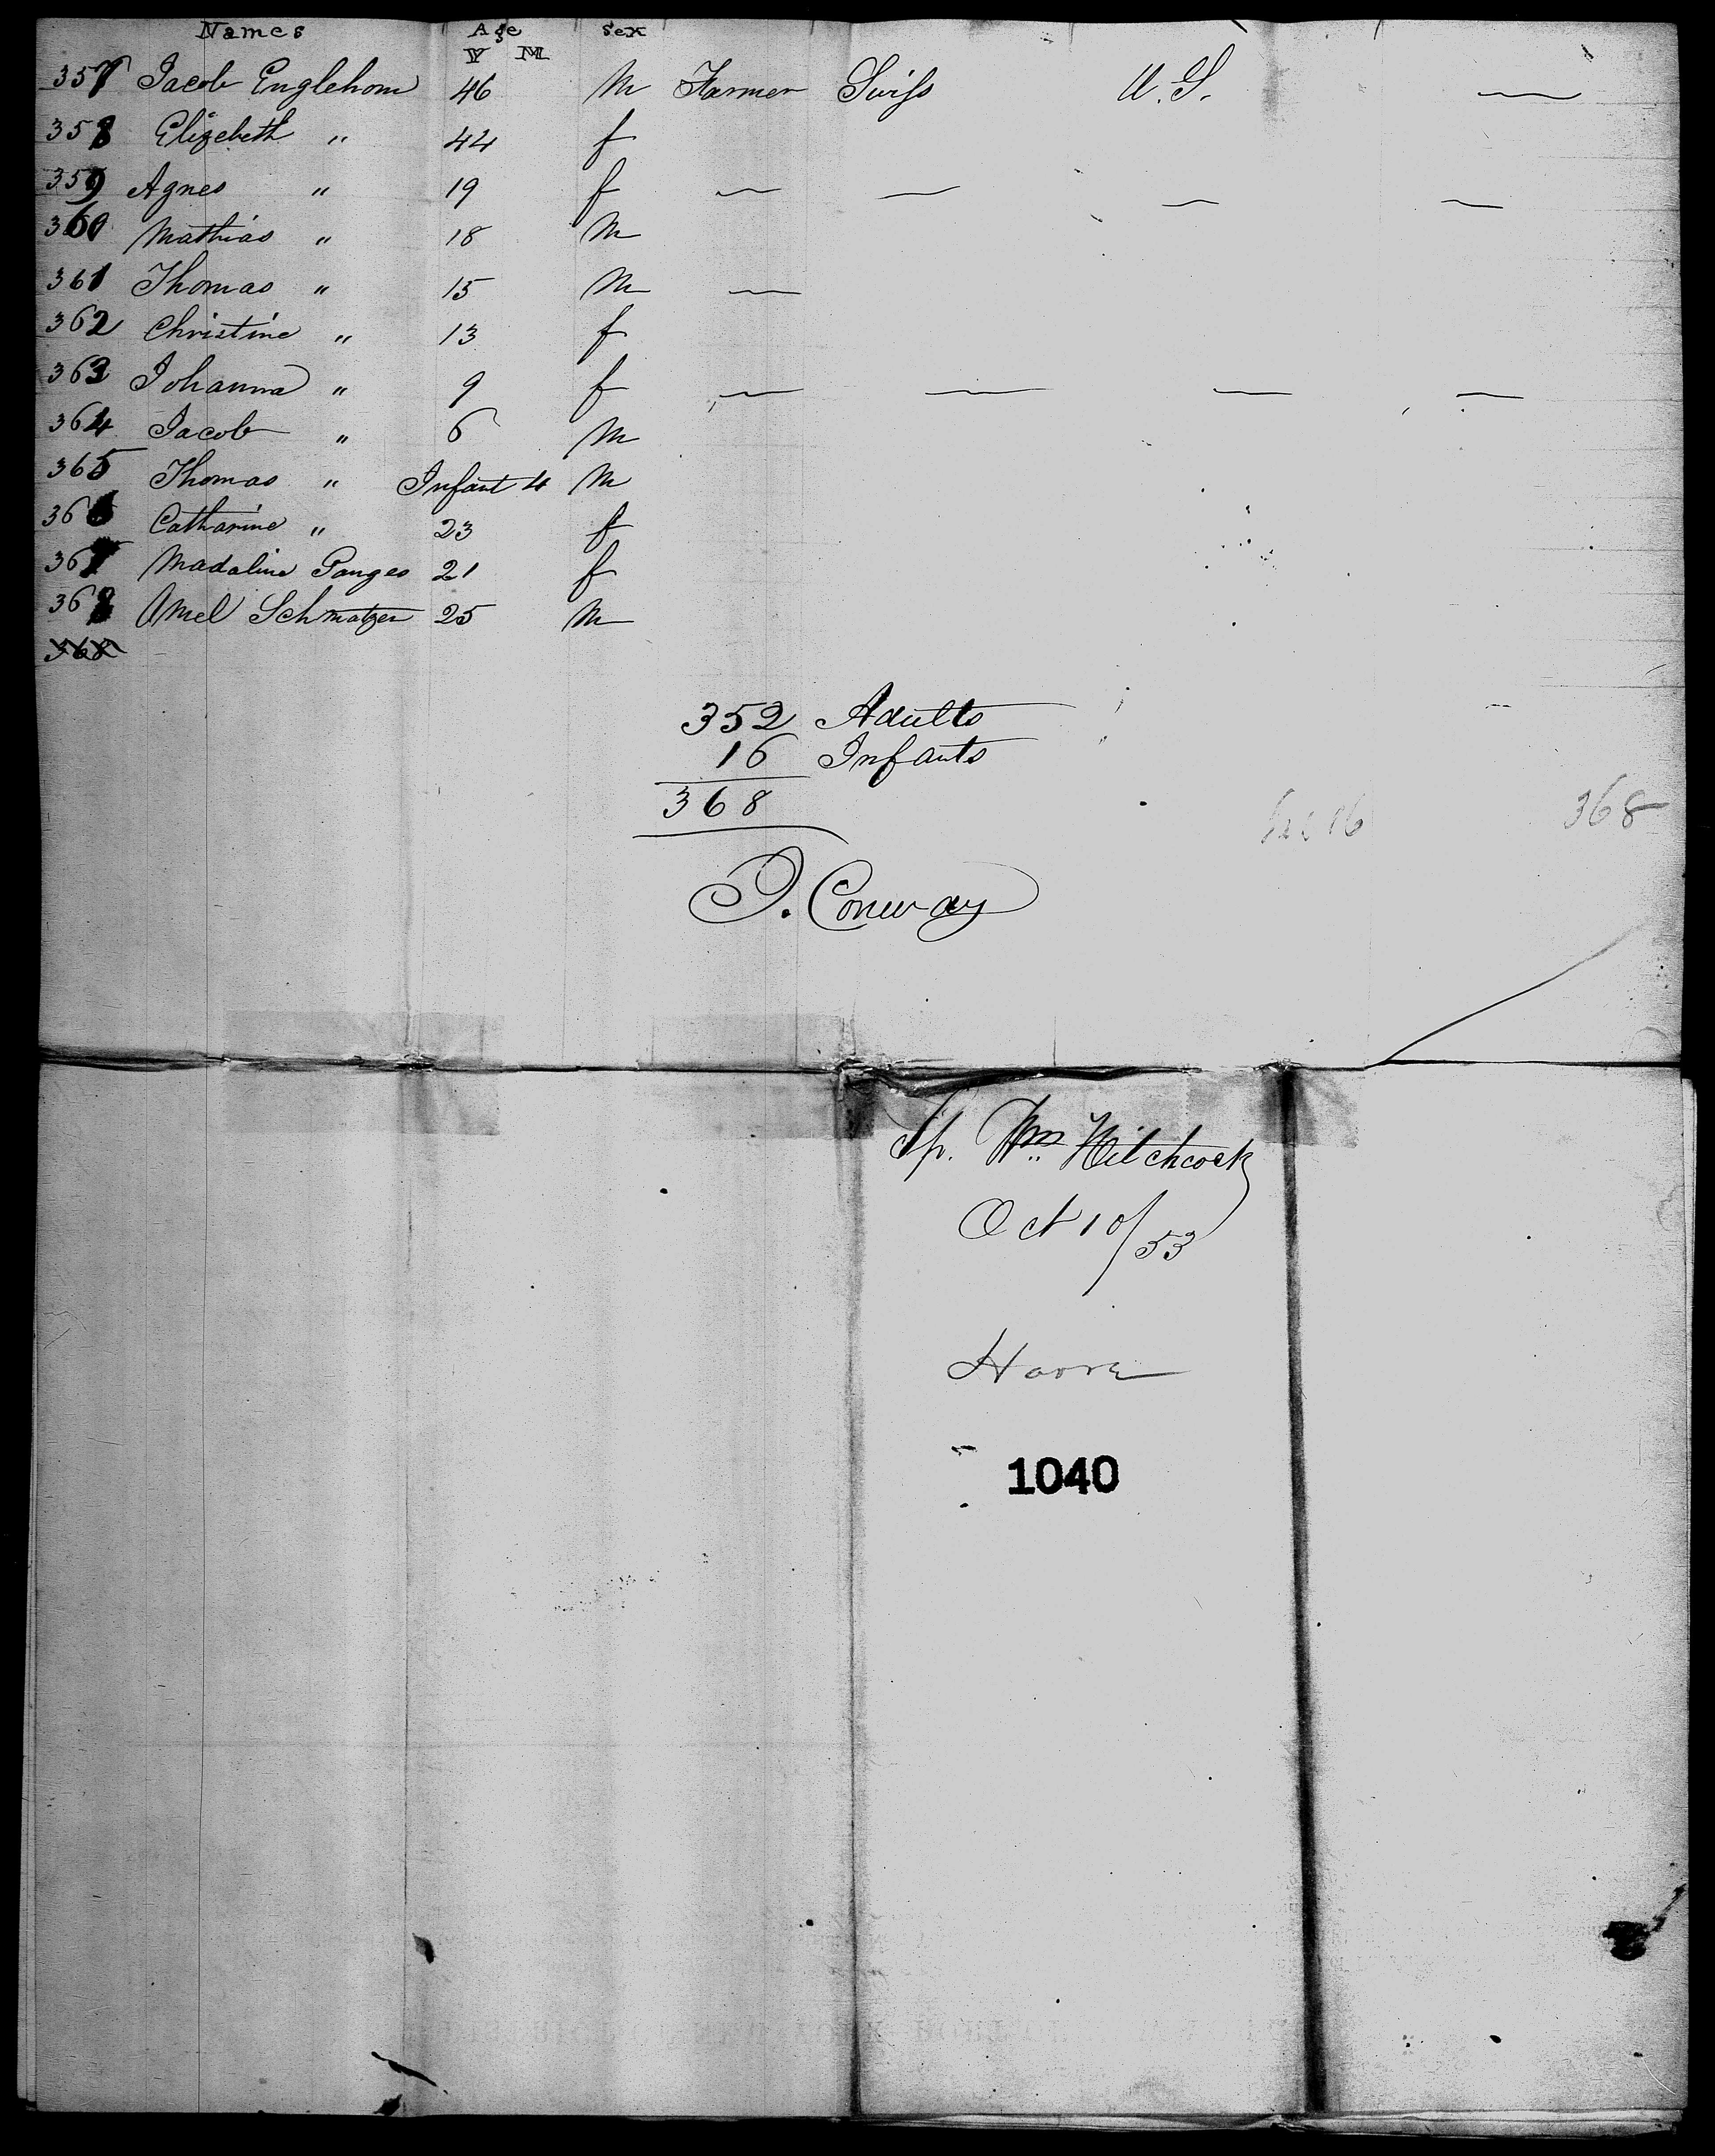 Names Age Sex
Y M
357 Jacob Englehorn 46 M Farmer Swiss U.S. —
358 Elizebeth " 44 f
359 Agnes " 19 f — — — —
360 Mathias " 18 M
361 Thomas " 15 M —
362 Christine " 13 f
363 Johanna " 9 f — — — —
364 Jacob " 6 M
365 Thomas " Infant 4 M
366 Catharine " 23 f
367 Madaline Ganges 21 f
368 Amel Schmatzer 25 M
368
352 Adults
16 Infants
368
16 368
J. Conway
Sp. Wm Hitchcock
Oct 10/53
Havre
1040